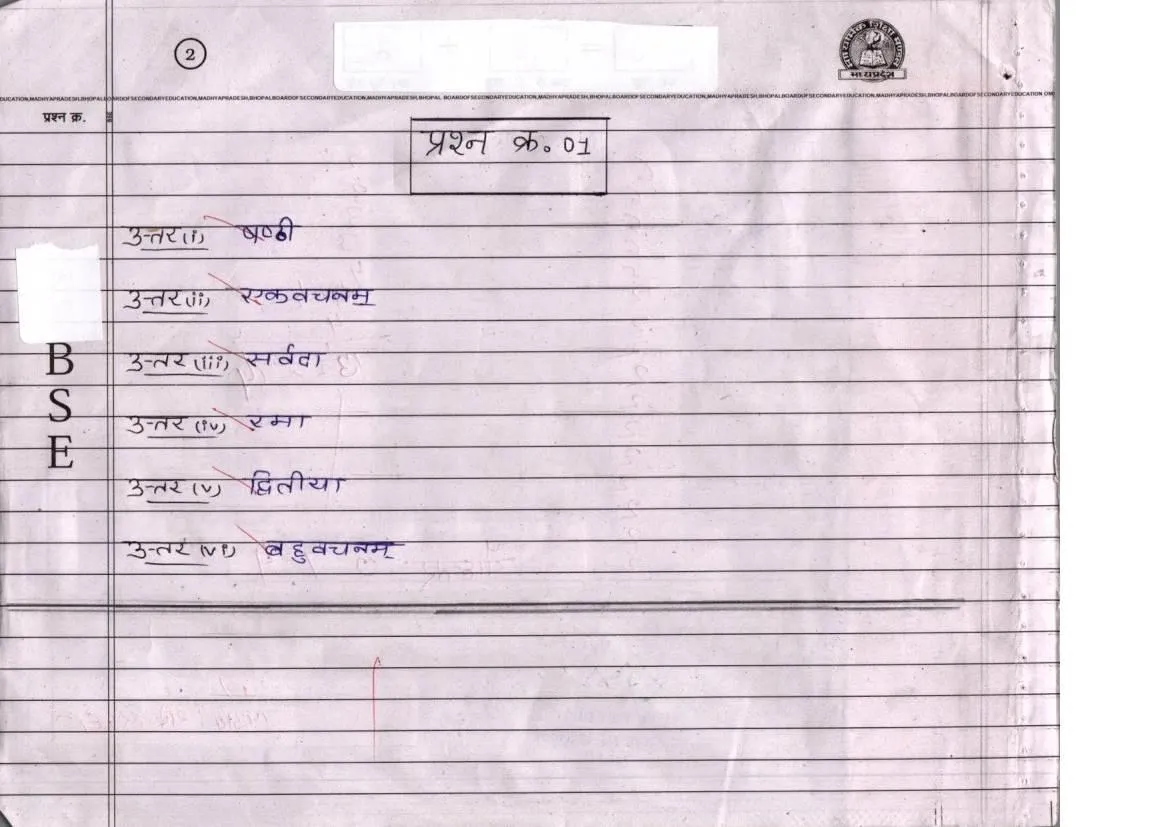 2
माध्यमिक शिक्षा मण्डल
मध्यप्रदेश
DUCATION,MADHYAPRADESH,BHOPAL BOARDOFSECONDARYEDUCATION,MADHYAPRADESH,BHOPAL BOARDOFSECONDARYEDUCATION,MADHYAPRADESH,BHOPAL BOARDOFSECONDARYEDUCATION,MADHYAPRADESH,BHOPALBOARDOFSECONDARYEDUCATION,MADHYAPRADESH,BHOPALBOARDOFSECONDARYEDUCATION
प्रश्न क्र.
प्रश्न क्र. 01
उत्तर (i) षष्ठी
उत्तर (ii) एकवचनम्
उत्तर (iii) सर्वदा
उत्तर (iv) रमा
उत्तर (v) द्वितीया
उत्तर (vi) बहुवचनम्
B
S
E